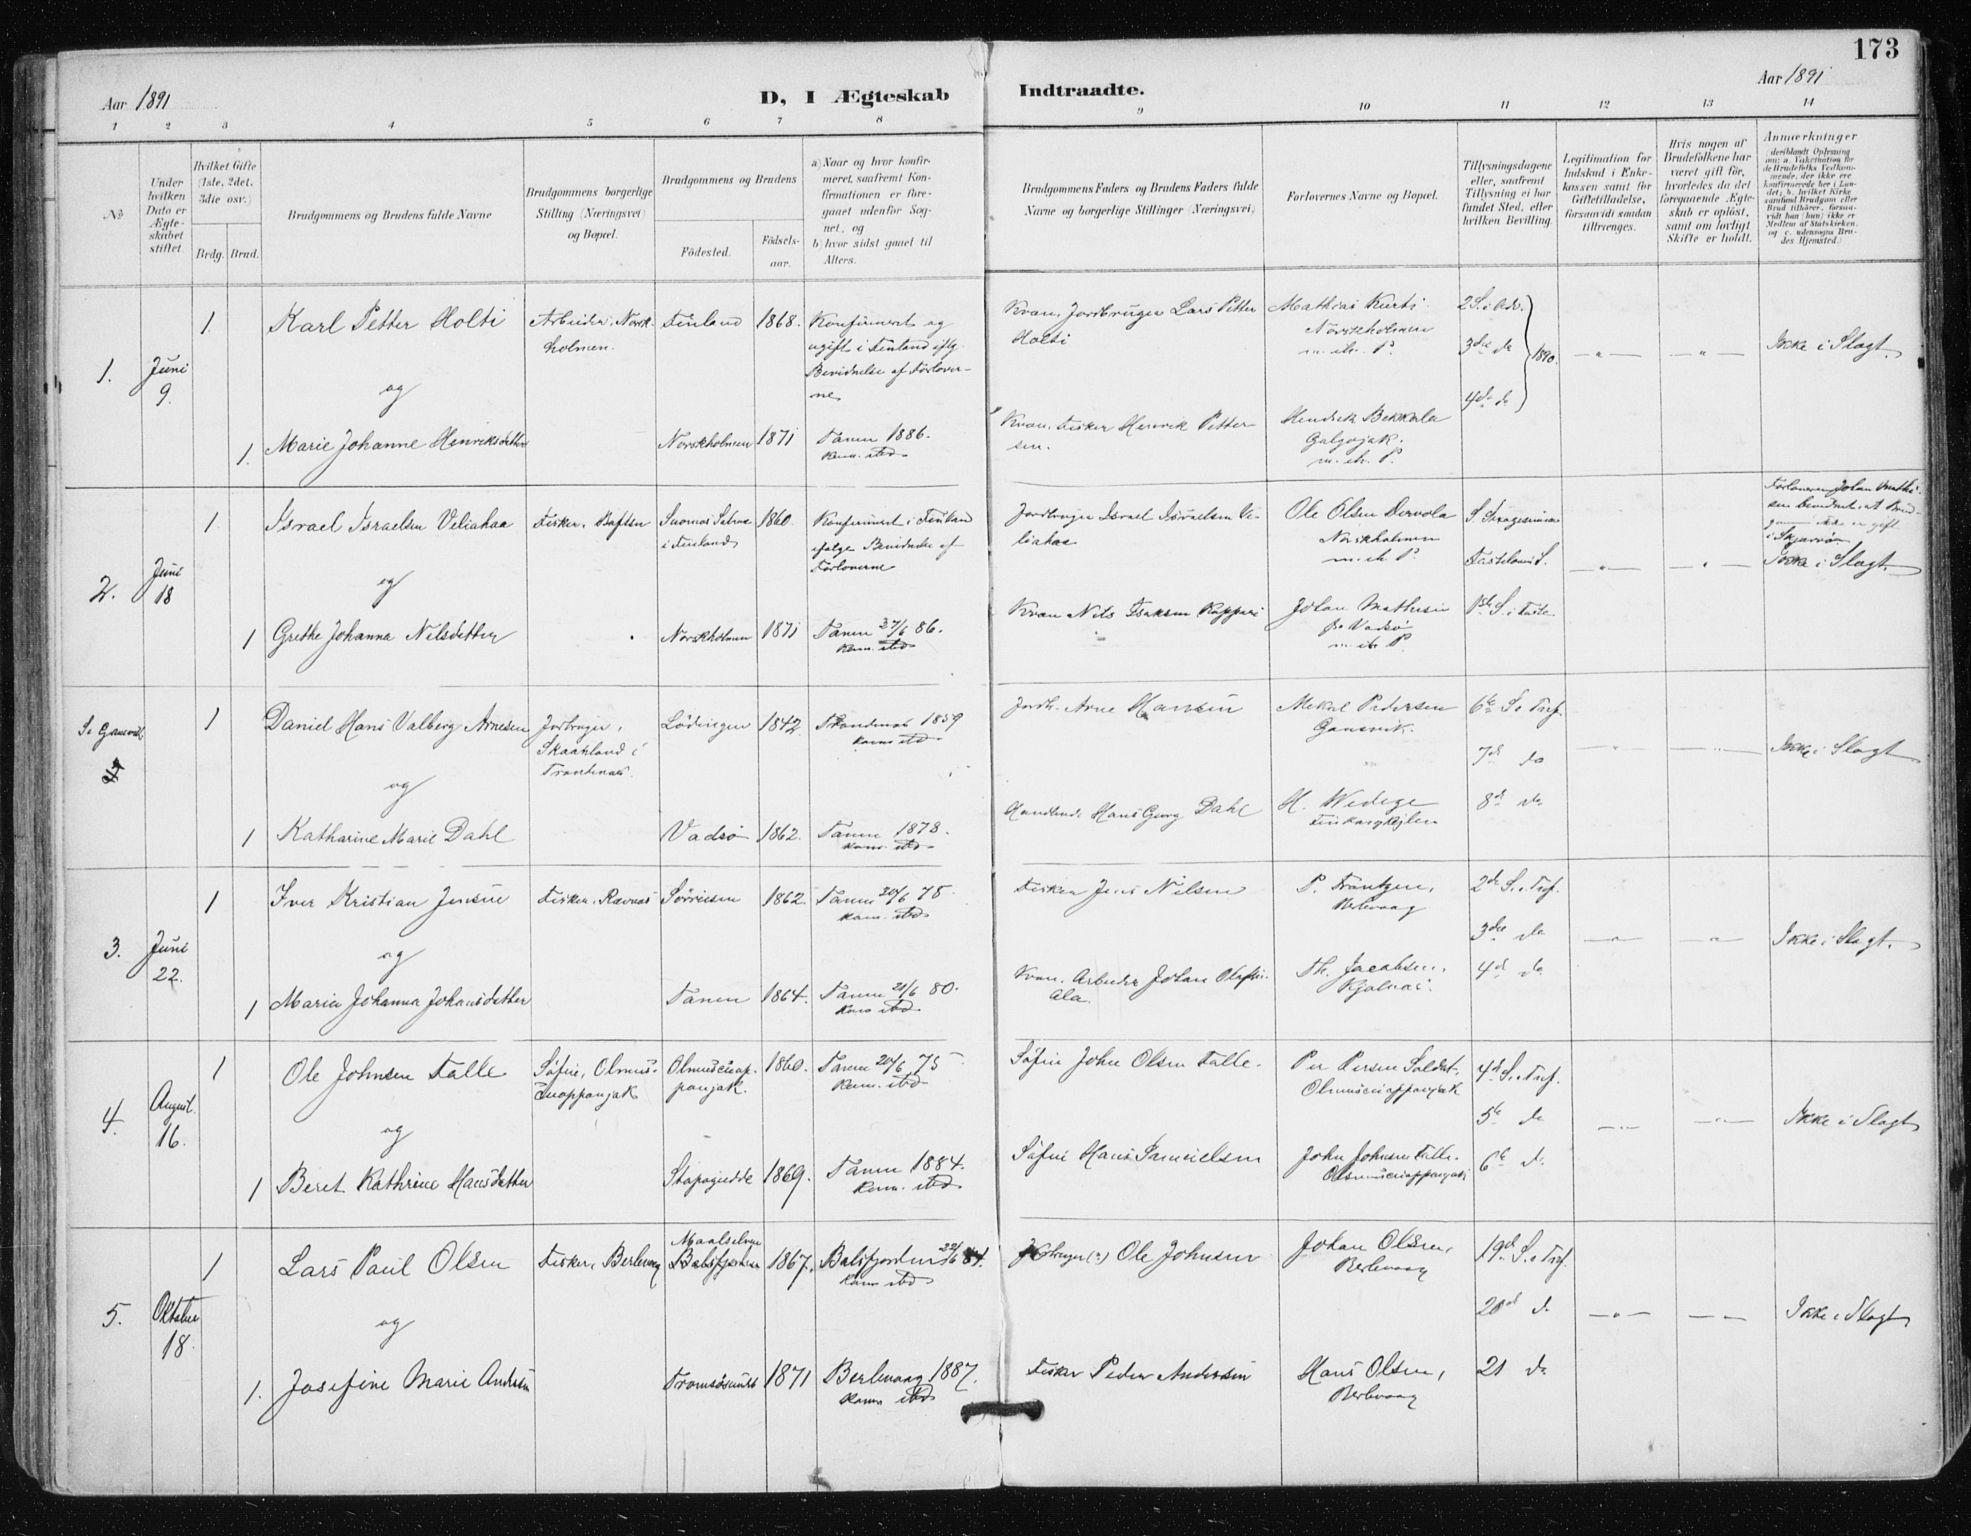 173
Aar 1891
D, I Ægteskab Indtraadte.
Aar 1891
1 2 3 4 5 6 7 8 9 10 11 12 13 14
No
Under hvilken Dato er Ægteskabet stiftet.
Hvilket Gifte (1ste, 2det, 3die osv.)
Brdg. Brud.
Brudgommens og Brudens fulde Navne
Brudgommens borgerlige Stilling (Næringsvei) og Bopæl.
Brudgommens og Brudens
Fødested.
Fødsels-aar.
a) Naar og hvor konfirmeret, saafremt Konfirmationen er foregaaet udenfor Sognet, og
b) hvor sidst gaaet til Alters.
Brudgommens Faders og Brudens Faders fulde Navne og borgerlige Stillinger (Næringsvei)
Forlovernes Navne og Bopæl.
Tillysningsdagene eller, saafremt Tillysning ei har fundet Sted, efter hvilken Bevilling.
Legitimation for Indskud i Enkekassen samt for Giftetilladelse, forsaavidt saadan tiltrænges.
Hvis nogen af Brudefolkene har været gift før, hvorledes da det foregaaende Ægteskab er opløst, samt om lovligt Skifte er holdt.
Anmærkninger
1. Juni 9.
1. Karl Petter Holti
Arbeider, Norskholmen.
Finland 1868.
Konfirmeret og ugift i Finland iflg. Bevidnelse af Forloverne
Kvæn, Jordbruger Lars Petter Holti
Mathias Kurti Norskholmen
2 S. i Adv. 3die do 4de do 1890.
Ikke i Slægt.
og
1. Marie Johanne Henriksdatter
Norskholmen 1871
Tanen 1886. Kom. ibd.
Kvæn, Fisker Henrik Pettersen.
Hendrik Bekkala Galgojok.
2. Juni 18
1. Israel Israelsen Veliahaa
Fisker,
i Finland 1860.
Konfirmeret i Finland ifølge Bevidnelse af Forloverne
Jordbruger Israel Israelsen Veliahaa
Ole Olsen Dervola Norskholmen
S. Sexagesima
Fastelavns S.
1ste S. i Faste
i Skjærvø.
Ikke i Slægt.
og
1 Grethe Johanna Nilsdatter
Norskholmen 1871
Tanen 27/6 86. Kom. ibd
Kvæn Nils Isaksen Koppari
Johan Mathisen Vadsø
1 Daniel Hans Valberg Arnesen
Jordbruger, Skaanland i Trondenæs.
Lødingen 1842
Trondenæs 1859 Kom. ibd
Jordb. Arne Hansen
Mekal Pedersen Gansvik.
6te S. e Tref. 7de do 8de do
Ikke i Slægt
og
1 Katharine Marie Dahl
Vadsø 1862.
Tanen 1878. Kom. ibd
Handlende Hans Georg Dahl
H. Wedege
3. Juni 22.
1 Iver Kristian Jensen
Fisker, Ravnæs
Sørreisen 1862.
Tanen 20/6 75. Kom. ibd
Fisker Jens Nilsen
P. Frantzen, Berlevaag
2de S. e. Tref. 3die do 4de do
Ikke i Slægt.
og
1 Maria Johanna Johansdatter
Tanen 1864.
Tanen 21/6 80. Kom ibd
Kvæn. Arbeider Johan Olafsen Ala.
Th. Jacobsen, Kjølnæs.
4. August 16.
1 Ole Johnsen Falle
Søfin, Olmusciuoppanjok
Olmusciuoppanjok. 1860.
Tanen 20/6 75 Kom. ibd
Søfin John Olsen Falle.
Per Persen Soldat, Olmusciuoppanjok
4de S. e. Tref. 5te do 6te do
Ikke i Slægt
og
1 Beret Kathrine Hansdatter
Stopogiedde 1869.
Tanen 1884. Kom. ibd.
Søfin Hans Samuelsen
John Johnsen Falle.
Olmusciuoppanjok
5. Oktober 18.
1 Lars Paul Olsen
Fisker, Berlevaag
Maalselven Balsfjorden 1867.
Balsfjorden 22/6 84. Kom ibd
Ole Johnsen
Johan Olsen, Berlevaag
19de S. e Tref. 20de d. 21 do
Ikke i Slægt
og
1. Josefine Marie Andersen
Tromsøsundet 1871
Berlevaag 1887. Kom ibd
Fisker Peder Andersen
Hans Olsen, Berlevaag